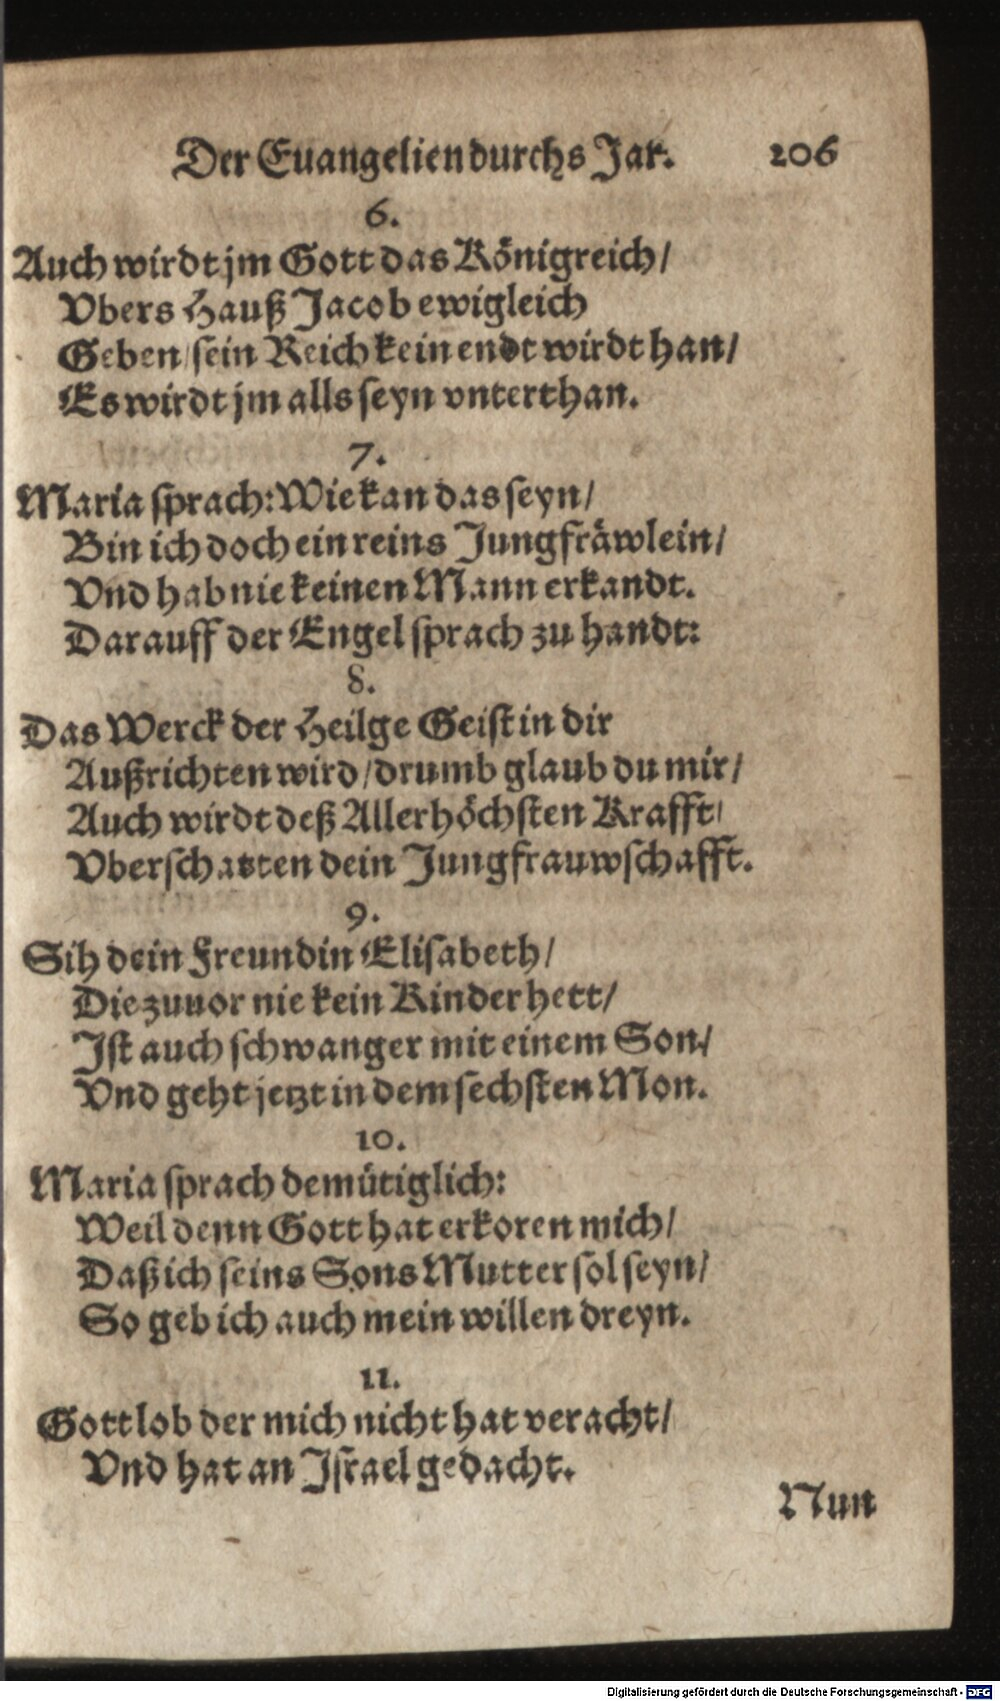 Der Euangelien durchs Jar. 206
6.
Auch wirdt jm Gott das Königreich/
Vbers Hauß Jacob ewigleich
Geben/ sein Reich kein endt wirdt han/
Es wirdt jm alls seyn vnterthan.
7.
Maria sprach: Wie kan das seyn/
Bin ich doch ein reins Jungfräwlein/
Vnd hab nie keinen Mann erkandt.
Darauff der Engel sprach zu handt:
8.
Das Werck der Heilge Geist in dir
Außrichten wird/ drumb glaub du mir/
Auch wirdt deß Allerhöchsten Krafft/
Vberschatten dein Jungfrauwschafft.
9.
Sih dein Freundin Elisabeth/
Die zuuor nie kein Kinder hett/
Ist auch schwanger mit einem Son/
Vnd geht jetzt in dem sechsten Mon.
10.
Maria sprach demütiglich:
Weil denn Gott hat erkoren mich/
Daß ich seins Sons Mutter sol seyn/
So geb ich auch mein willen dreyn.
11.
Gott lob der mich nicht hat veracht/
Vnd hat an Israel gedacht.
Nun
Digitalisierung gefördert durch die Deutsche Forschungsgemeinschaft - DFG